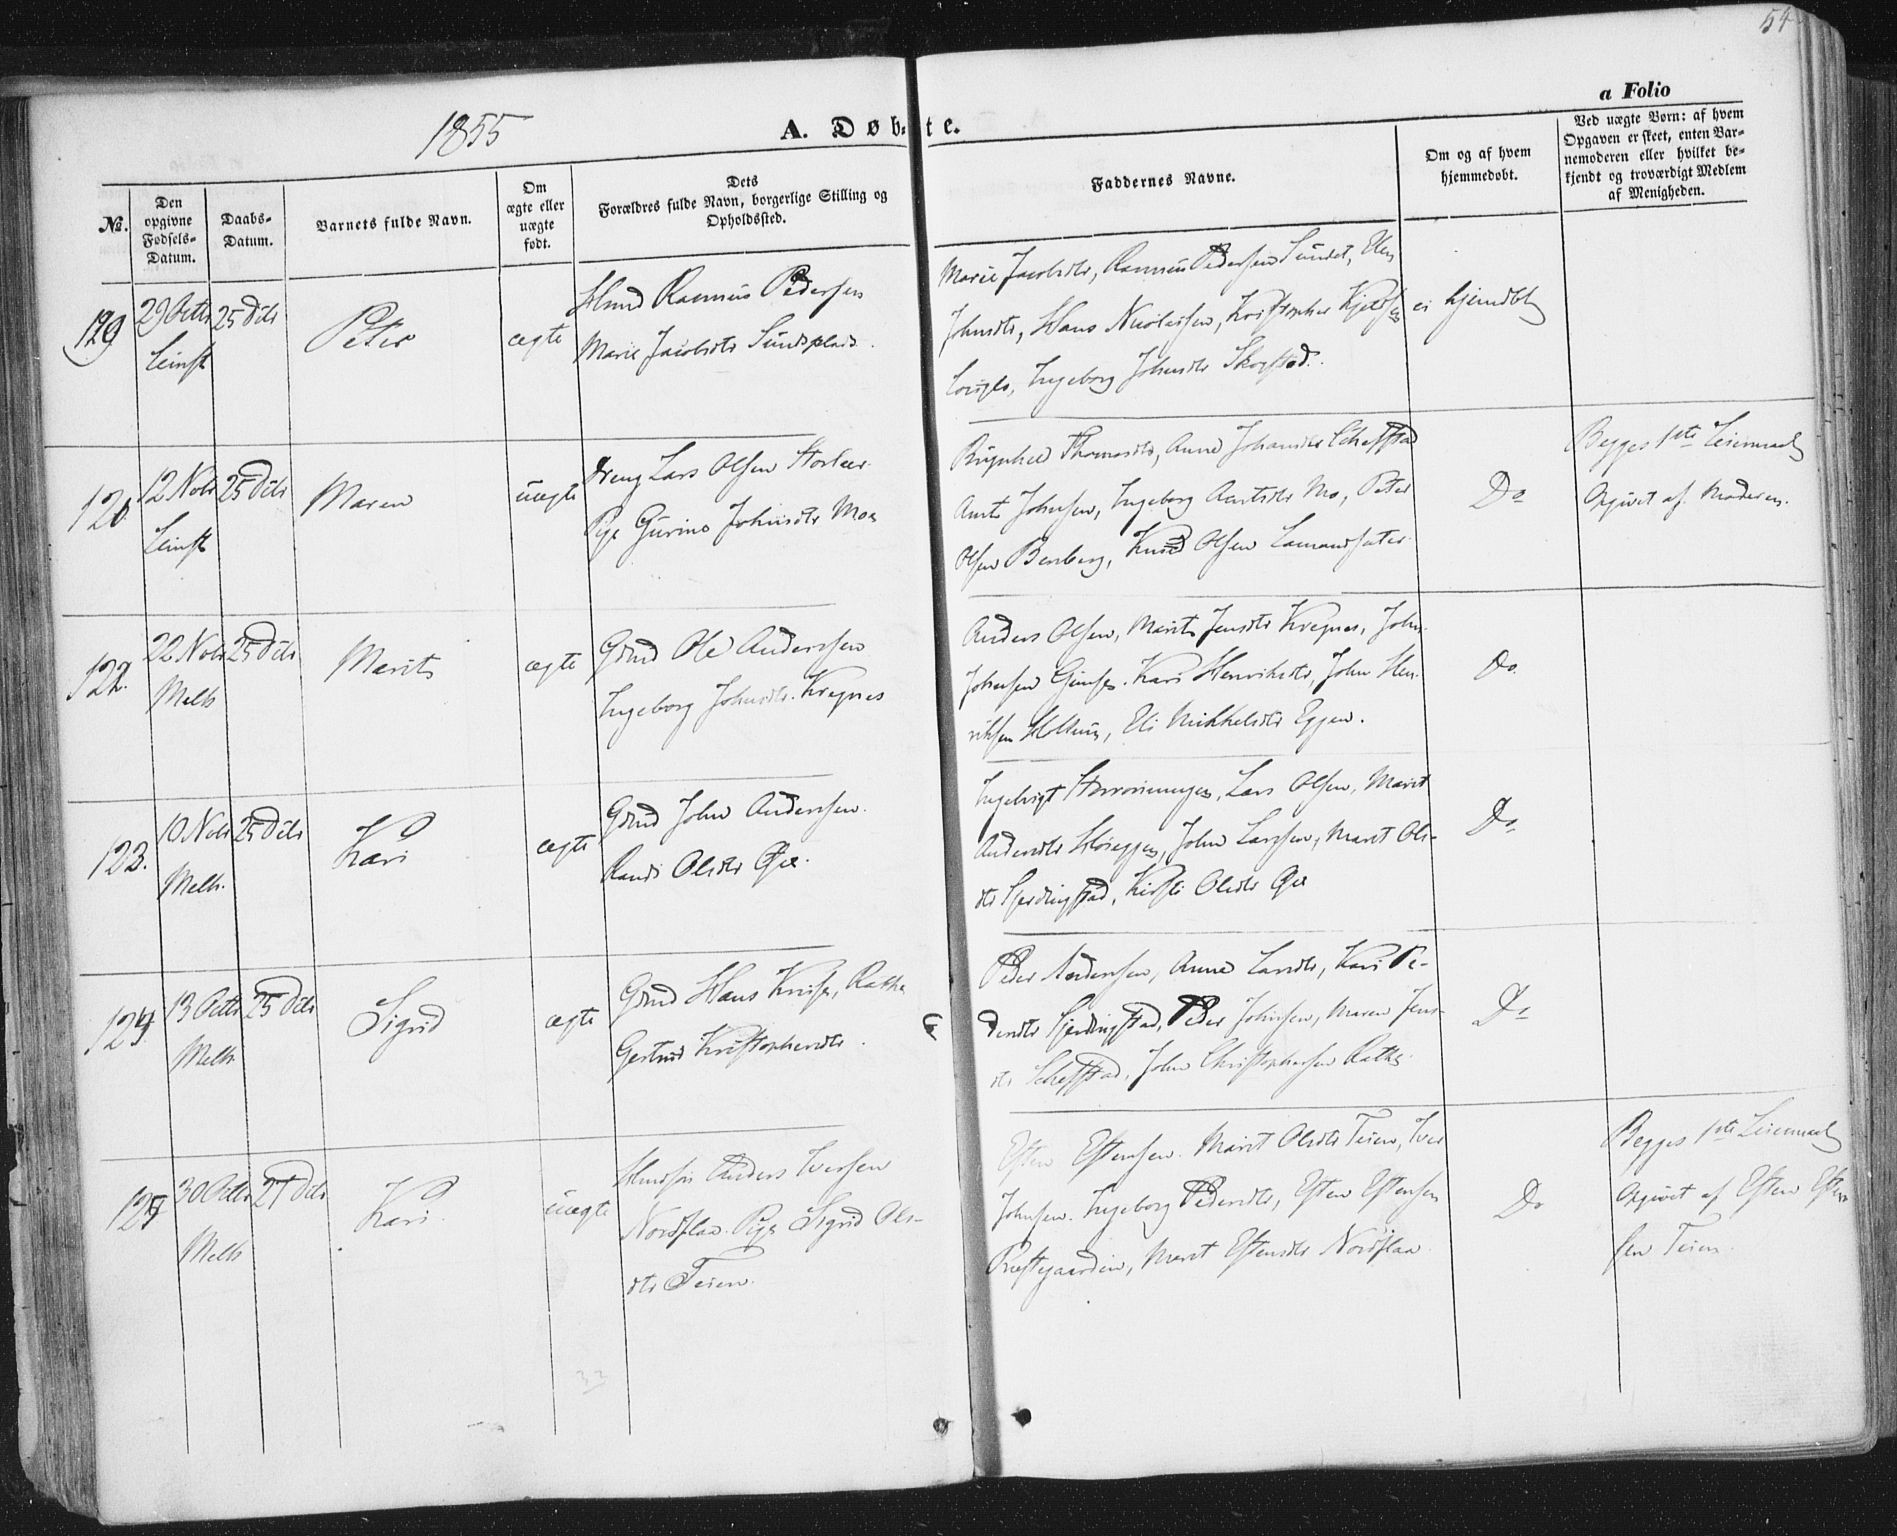 54
1855
A. Døbte.
a Folio
№.
Den opgivne Fødsels-Datum.
Daabs-Datum.
Barnets fulde Navn.
Om ægte eller uægte født.
Dets Forældres fulde Navn, borgerlige Stilling og Opholdssted.
Faddernes Navne.
Om og af hvem hjemmedøbt.
Ved uægte Børn: af hvem Opgaven er skeet, enten Barnemoderen eller hvilket bekjendt og troværdigt Medlem af Menigheden.
29 Octbr 25 Dcbr
Peter
ægte
Hmd Rasmus Pedersen
Marie Jacobsdtr Sundsplads.
Marie Jacobsdtr, Rasmus Pedersen Sundet, Elen
Johnsdtr, Hans Nicolaisen, Kristopher
Ingeborg Johnsdtr Skogstad.
ei hjemdbt
12 Nobr 25 Dcbr
Leinst
Maren
uægte
Dreng Lars Olsen
Pige Gurine Johnsdtr Moe
Brynhild Thomasdtr, Anne Johansdtr
Arnt Johnsen, Ingeborg Arntsdtr Mo, Peter
Olsen Benberg, Knud Olsen
Do
Begges 1ste Leiermaal
Opgivet af Moderen.
122.
22 Nobr 25 Dcbr
Melh
Marit
ægte
Gbrd Ole Andersen
Ingeborg Johnsdtr. Kregnes
Anders Olsen, Marit Jensdtr Kregnes, John
Johnsen Gimse. Kari Henriksdtr, John Hen-
riksen Hollum, Eli Mikkelsdtr Eggen.
Do.
123.
10 Nobr 25 Dcbr
Melh.
Kari
ægte
Gbrd John Andersen.
Randi Olsdtr Øie.
Lars Olsen, Marit
Andersdtr Høieggen, John Larssen, Marit Ols-
dtr Gjerdingstad, Kirsti Olsdtr Øie
Do
124.
13 Octbr 25 Dcbr
Melh
Sigrid
ægte
Gbrd Hans
Gertrud Kristophersdtr.
Peder Andersen, Anne Larsdtr, Kari Pe-
dersdtr Gjerdingstad, Peder Johnsen, Maren Jens-
dtr John Christophersen
Do
125
30 Octbr
Melh
Kari.
uægte
Anders Iversen
Nordflaa. Pige Sigrid Ols-
dtr Teien.
Esten Estensen. Marit Olsdtr Teien, Iver
Johnsen. Ingeborg Pedersdtr, Esten Estensen
Præstegaarden, Marit Estensdtr Nordflaa.
Do
Begges 1ste Leiermaal
Opgivet af Esten Esten
sen Teien